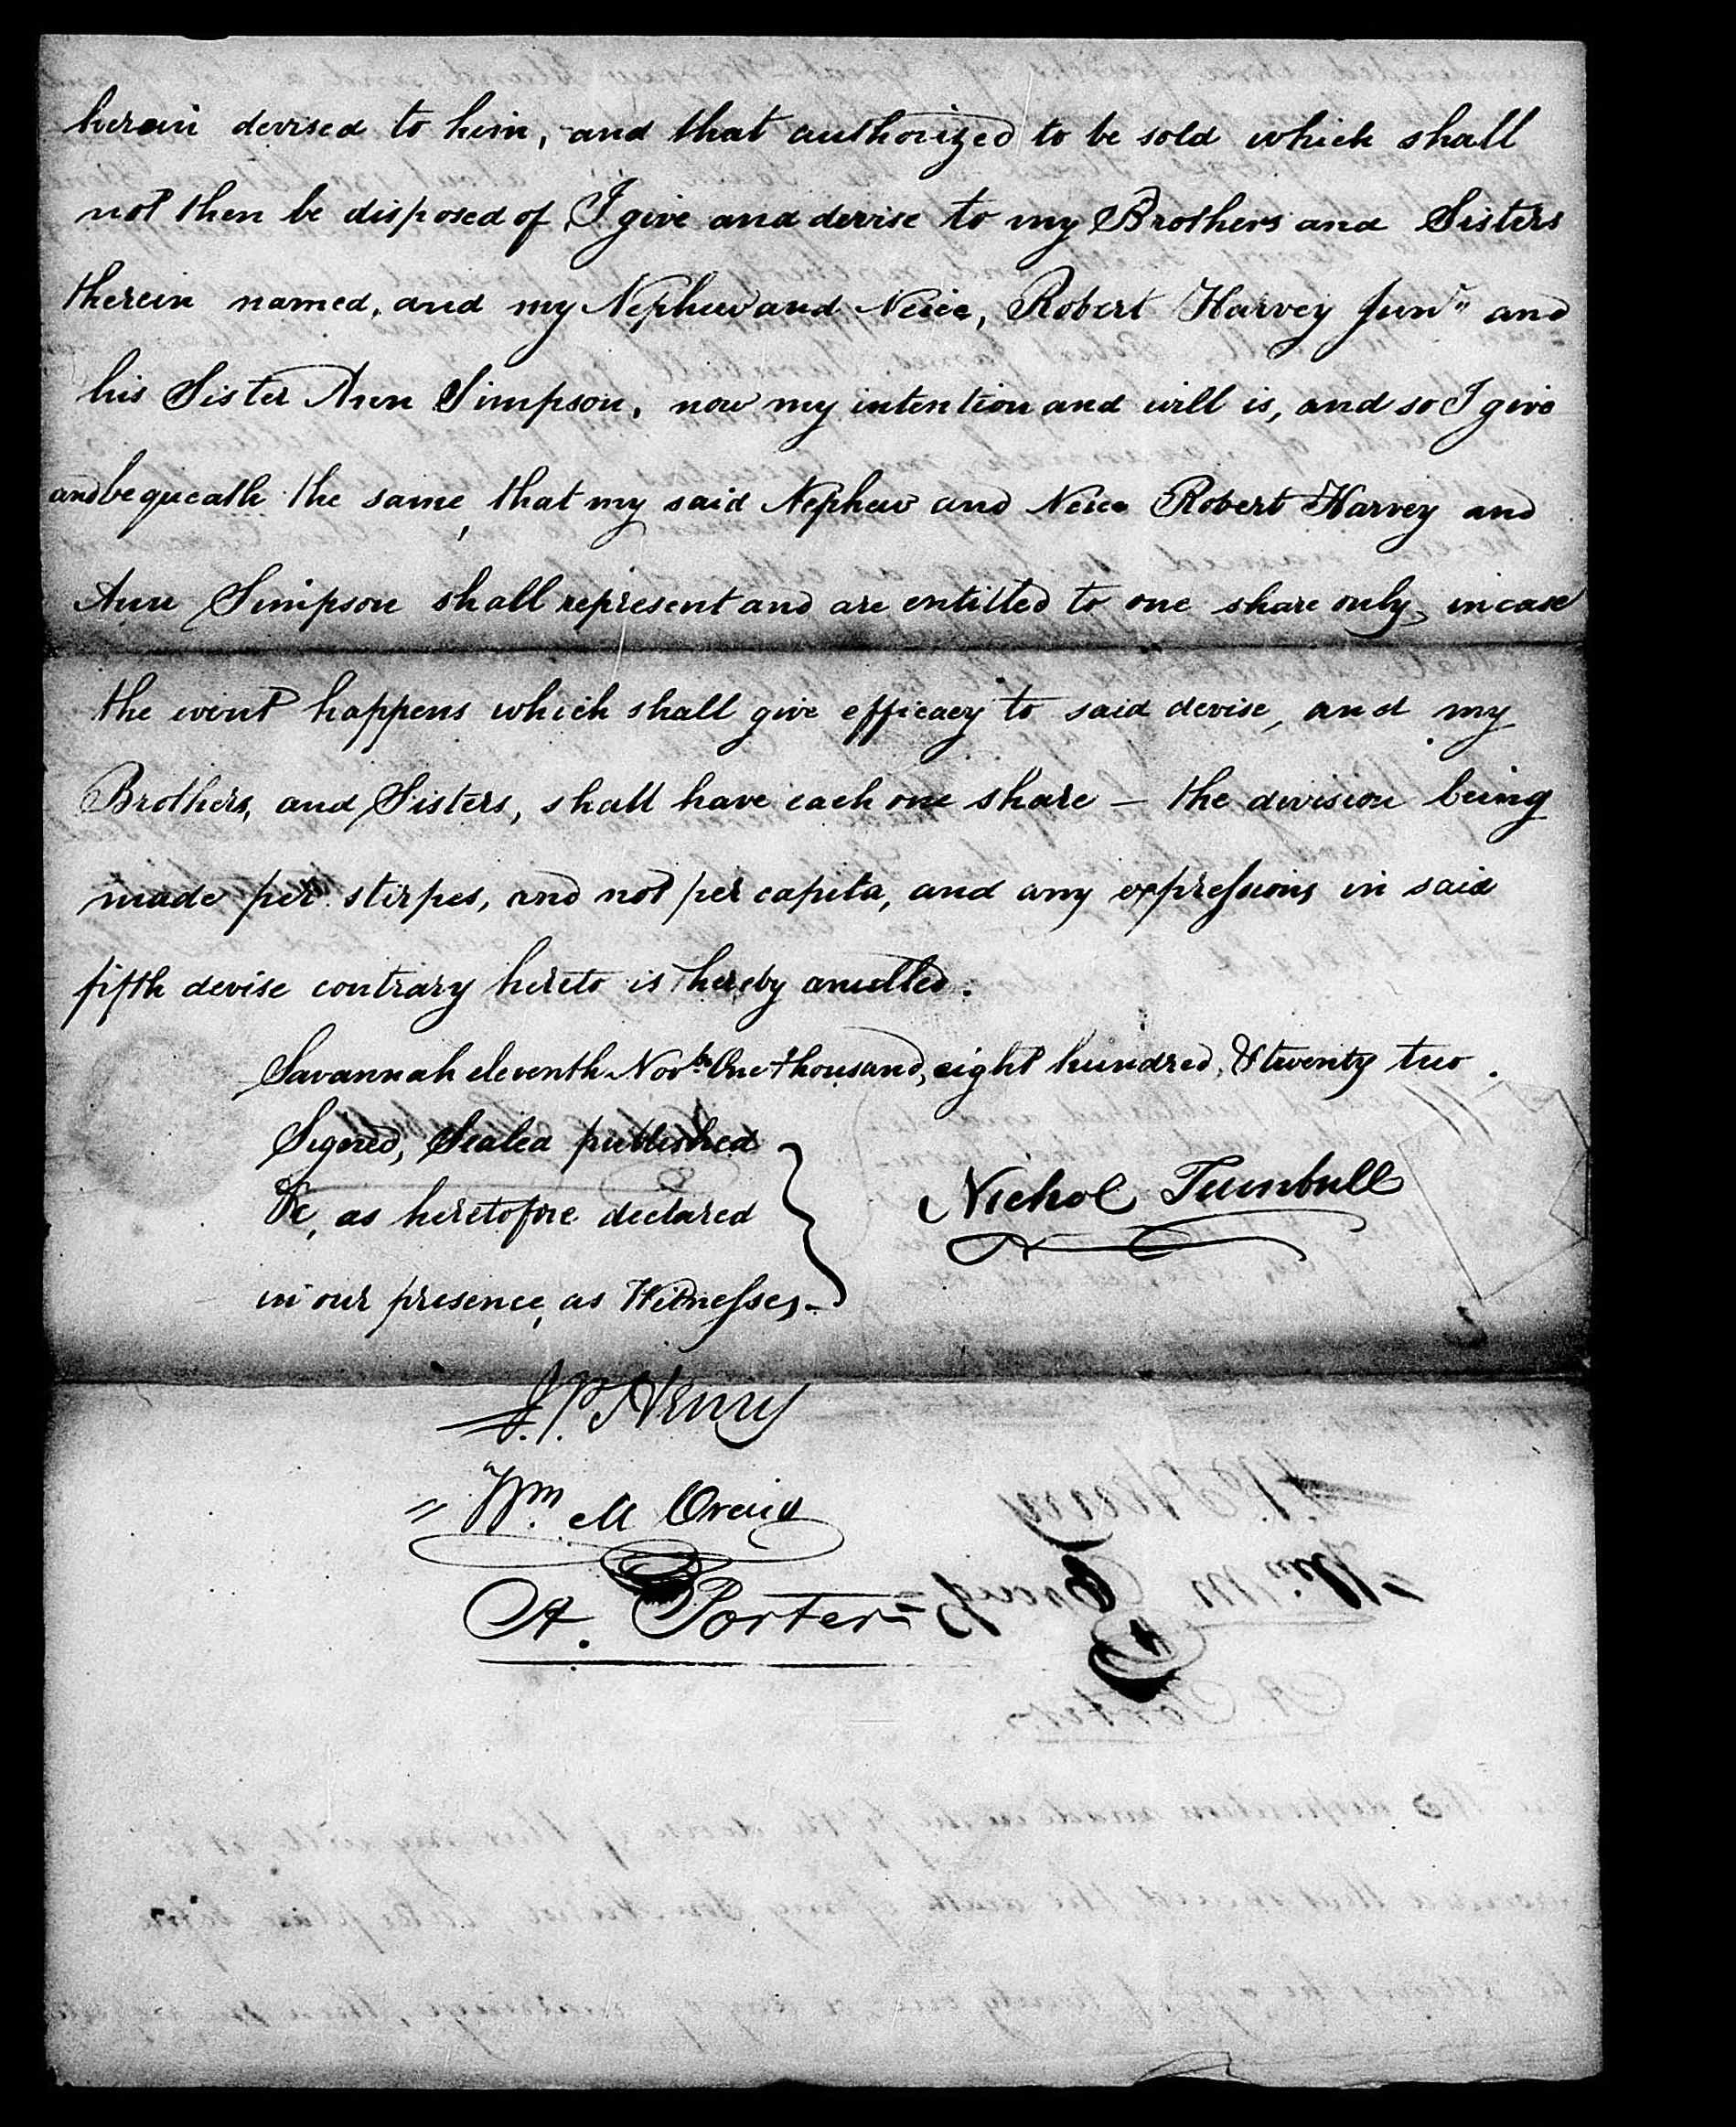 herein devised to him, and that authorized to be sold which shall
not then be disposed of I give and devise to my Brothers and Sisters
therein named, and my Nephew and Neice, Robert Harvey Junr and
his Sister Ann Simpson, now my intention and will is, and so I give
and bequeath the same, that my said Nephew and Neice Robert Harvey and
Ann Simpson shall represent and are entitled to one share only, in case
the event happens which shall give efficacy to said devise, and my
Brothers, and Sisters, shall have each one share — the division being
made per stirpes, and not per capita, and any expressions in said
fifth devise contrary hereto is hereby anulled.
Savannah eleventh Novbr One thousand, eight hundred, & twenty two.
Signed, Sealed published
&c, as heretofore declared
in our presence, as Witnesses—
Nichol Turnbull
J. P. Henry
Wm M Craig
A. Porter